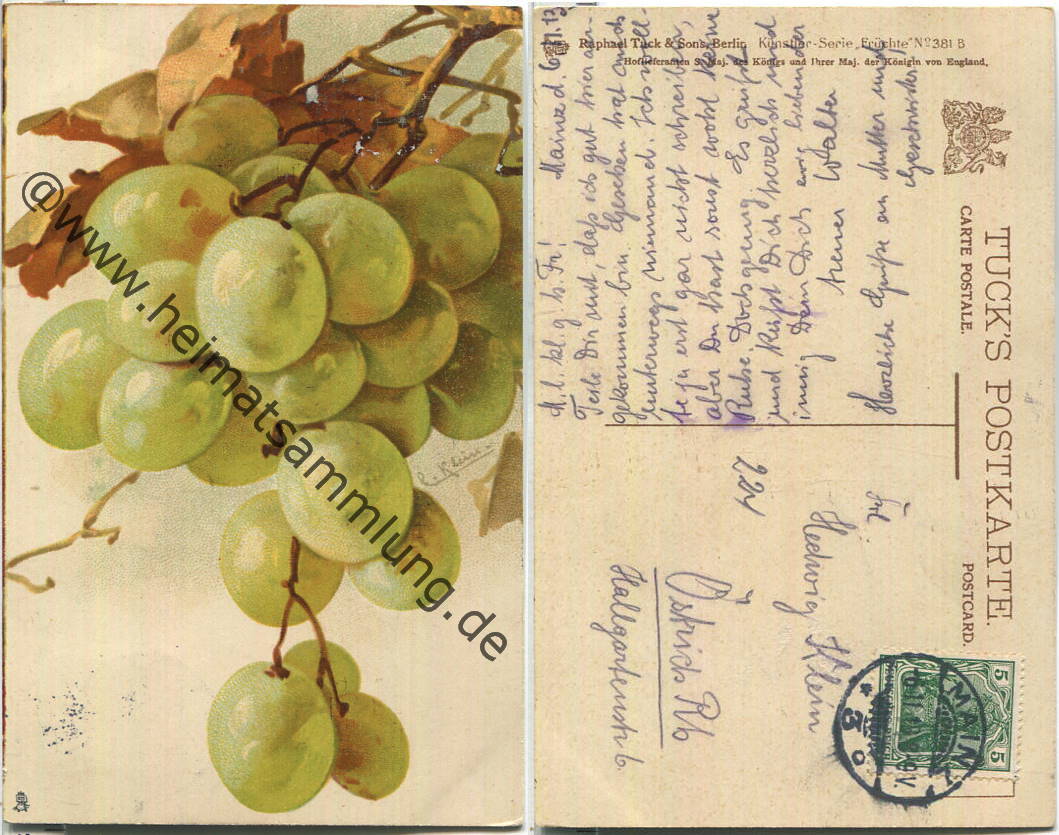 @www.heimatsammlung.de
C. Klein
Raphael Tuck & Sons, Berlin Künstler-Serie „Früchte" Nº 381 B
Hoflieferanten S. Maj. des Königs und Ihrer Maj. der Königin von England.
TUCK'S POSTKARTE.
CARTE POSTALE.
POSTCARD.
Mainz d.
M. l. kl. g. h. Fr!
Teile Dir mit, daß ich gut hier an-
gekommen bin. Gesehen hat mich
unterwegs niemand. Ich woll-
te ja erst gar nicht schreiben,
aber Du hast sonst wohl keine
Ruhe. Doch genug. Es grüßt
und küßt Dich herzlich und
innig Dein Dich ewig liebender
treuer Walter
Herzliche Grüße an Mutter und
Geschwister
Frl.
Hedwig Klein
Östrich Rh
Hallgartenerstr 6.
MAINZ
5
5